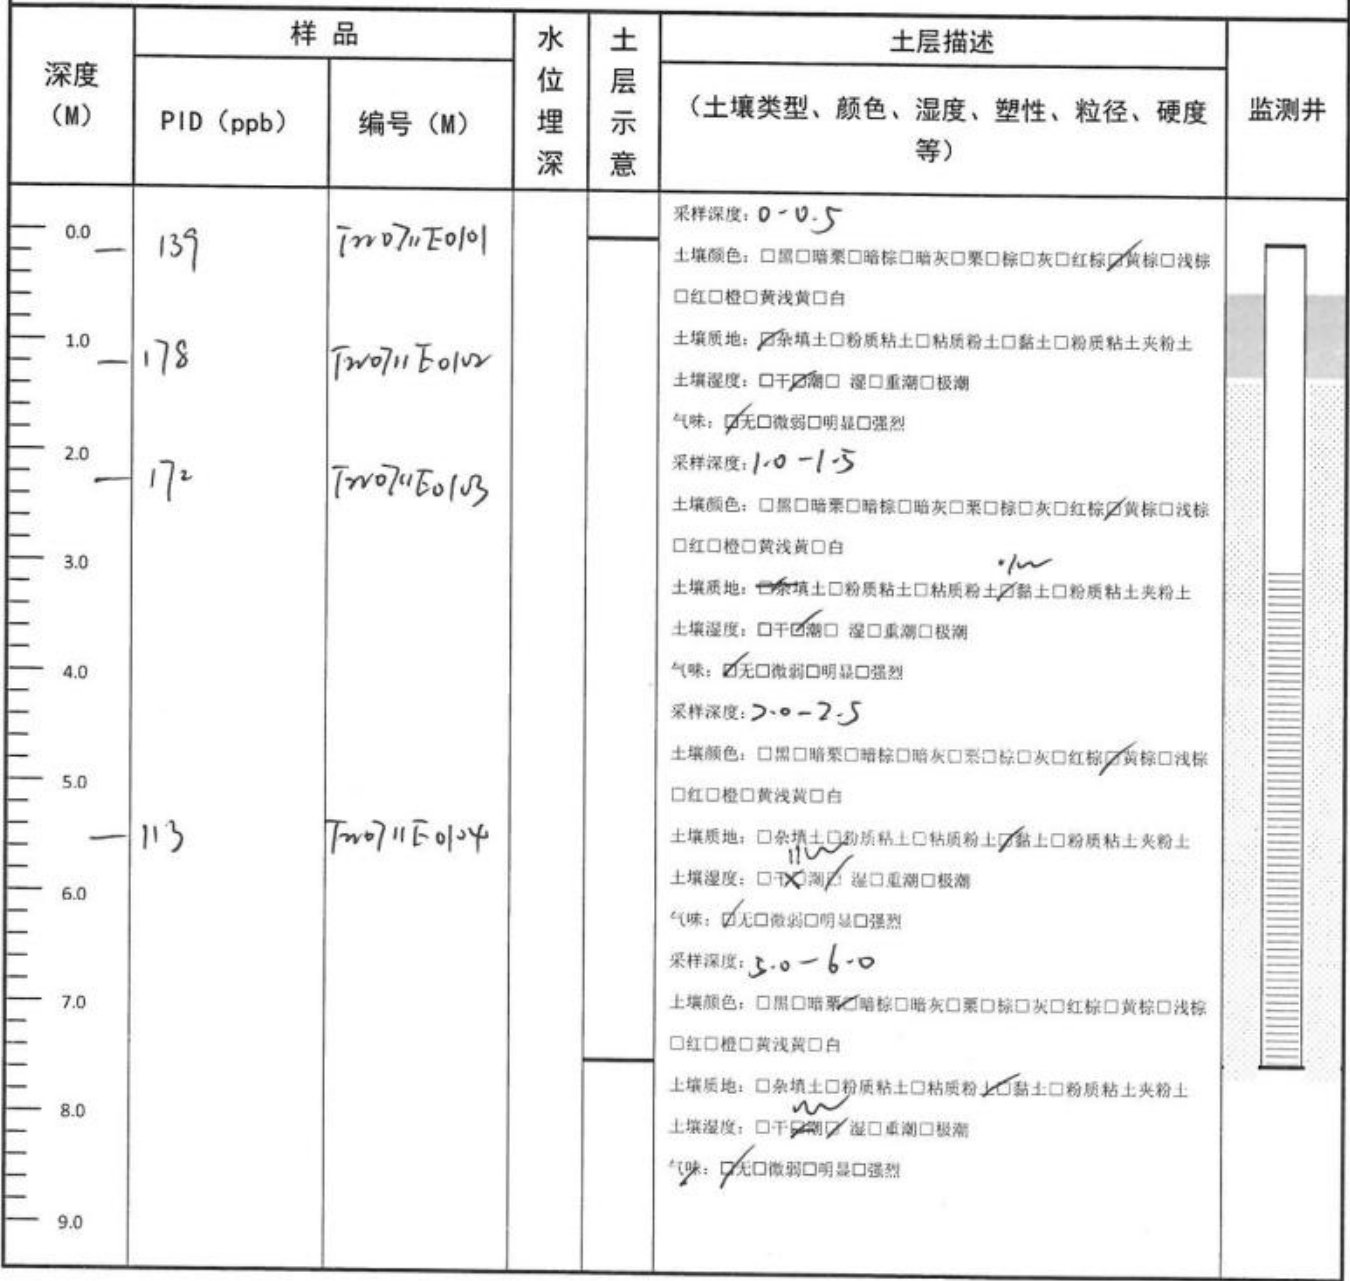 深度
(M)
样 品
PID (ppb)
编号 (M)
水位埋深
土层示意
土层描述
(土壤类型、颜色、湿度、塑性、粒径、硬度
等)
监测井
0.0
1.0
2.0
3.0
4.0
5.0
6.0
7.0
8.0
9.0
139
178
172
113
TW0711E0101
TW0711E0102
TW0711E0103
TW0711E0104
采样深度：0-0.5
土壤颜色：□黑□暗栗□暗棕□暗灰□栗□棕□灰□红棕☑黄棕□浅棕
□红□橙□黄浅黄□白
土壤质地：☑杂填土□粉质粘土□粘质粉土□黏土□粉质粘土夹粉土
土壤湿度：□干☑潮□ 湿□重潮□极潮
气味：☑无□微弱□明显□强烈
采样深度：1.0-1.5
土壤颜色：□黑□暗栗□暗棕□暗灰□栗□棕□灰□红棕☑黄棕□浅棕
□红□橙□黄浅黄□白
土壤质地：□杂填土□粉质粘土□粘质粉土☑黏土□粉质粘土夹粉土
土壤湿度：□干☑潮□ 湿□重潮□极潮
气味：☑无□微弱□明显□强烈
采样深度：2.0-2.5
土壤颜色：□黑□暗栗□暗棕□暗灰□栗□棕□灰□红棕☑黄棕□浅棕
□红□橙□黄浅黄□白
土壤质地：□杂填土□粉质粘土□粘质粉土☑黏土□粉质粘土夹粉土
土壤湿度：□干□潮☑ 湿□重潮□极潮
气味：☑无□微弱□明显□强烈
采样深度：5.0-6.0
土壤颜色：□黑□暗栗☑暗棕□暗灰□栗□棕□灰□红棕□黄棕□浅棕
□红□橙□黄浅黄□白
土壤质地：□杂填土□粉质粘土□粘质粉土☑黏土□粉质粘土夹粉土
土壤湿度：□干□潮☑ 湿□重潮□极潮
气味：☑无□微弱□明显□强烈